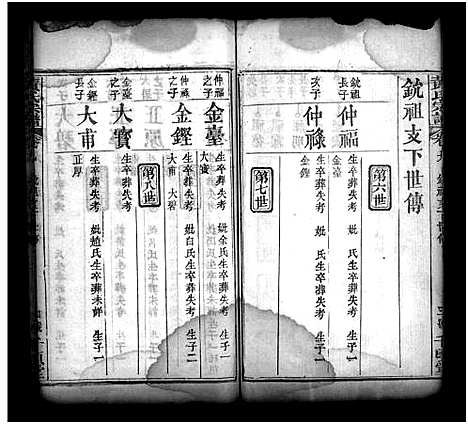 銃祖支下世傳
第六世
銃祖長子
仲福
生卒葬失考 妣 氏生卒葬失考 生子一
金臺
次子
仲祿
生卒葬失考 妣 氏生卒葬失考 生子一
金鏗
第七世
仲福之子
金臺
生卒葬失考 妣余氏生卒葬失考 生子一
大賓
仲祿之子
金鏗
生卒葬失考 妣白氏生卒葬失考 生子二
大甫 大碧
第八世
金臺之子
大賓
生卒葬失考 妣 氏生卒葬失考
金鏗長子
大甫
生卒葬失考 妣趙氏生卒葬未詳 生子一
正厚